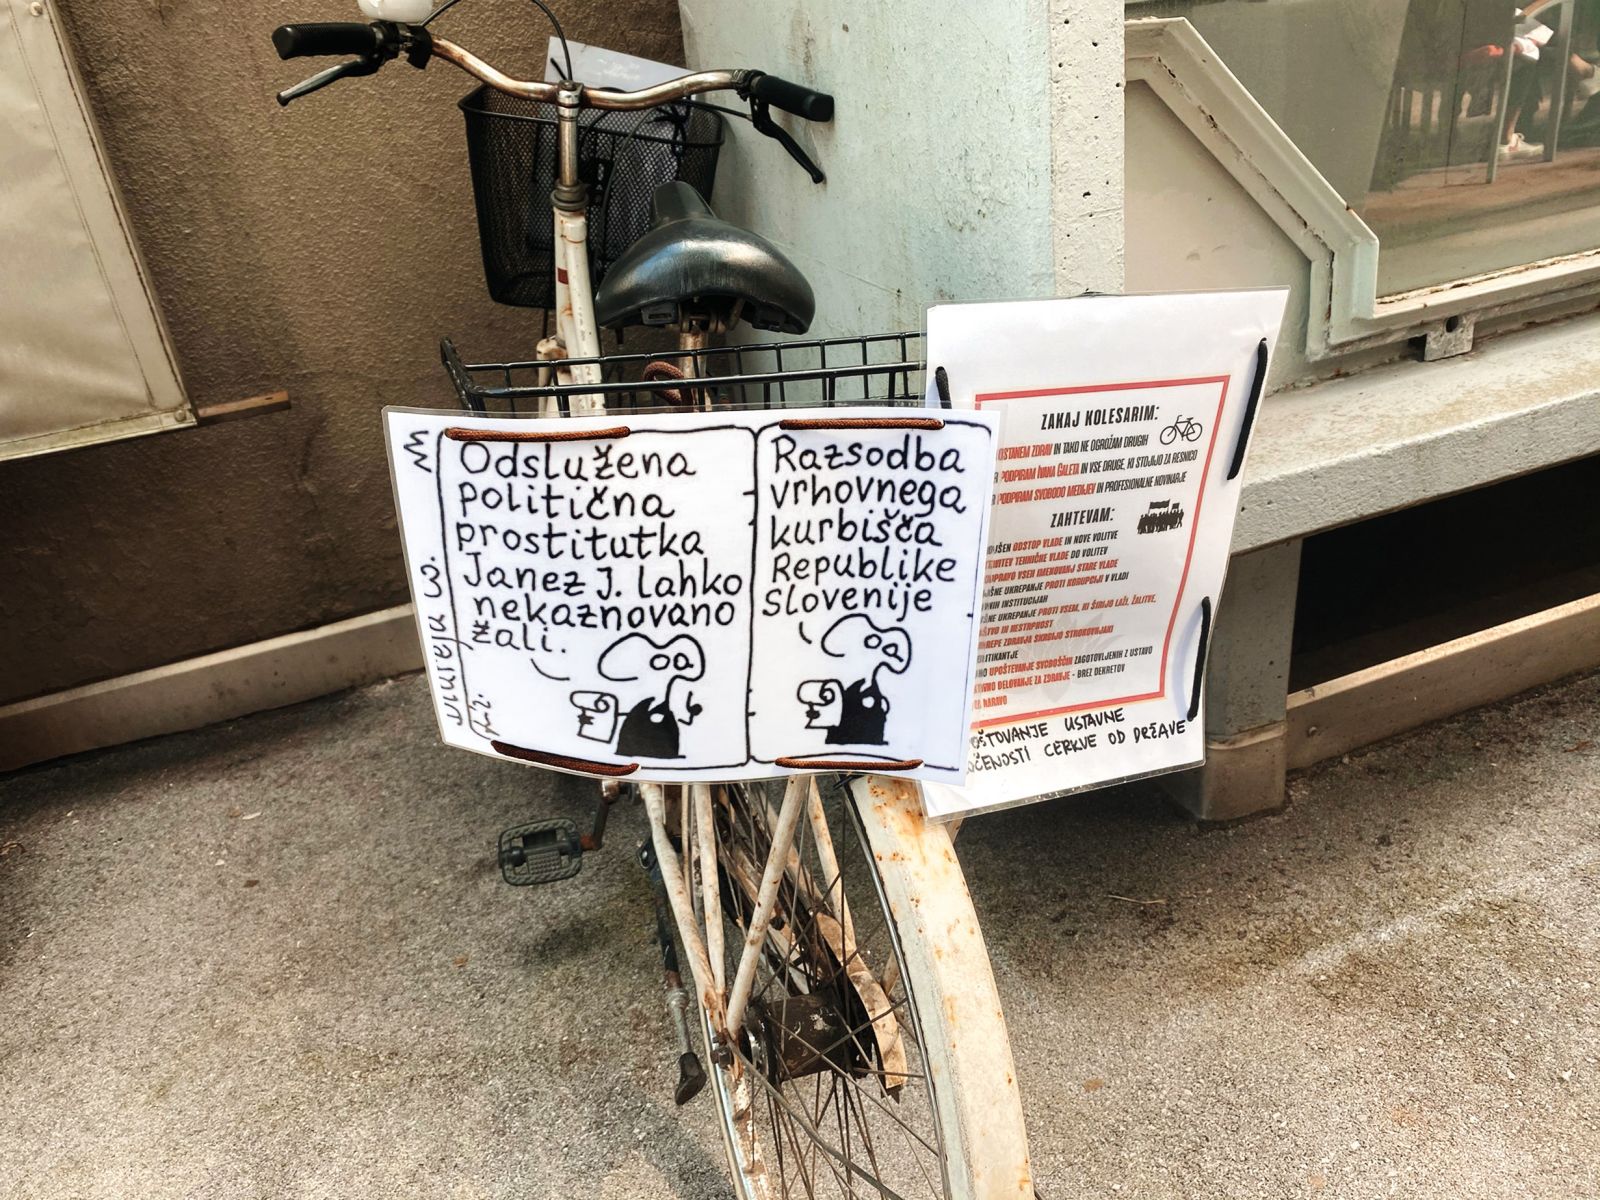 Odslužena
politična
prostitutka
Janez J. lahko
nekaznovano
žali.
Razsodba
vrhovnega
kurbišča
Republike
Slovenije
ZAKAJ KOLESARIM:
OSTANEM ZDRAV IN TAKO NE OGROŽAM DRUGIH
PODPIRAM IVANA GALETA IN VSE DRUGE, KI STOJIJO ZA RESNICO
PODPIRAM SVOBODO MEDIJEV IN PROFESIONALNE NOVINARJE
ZAHTEVAM:
ODSTOP VLADE IN NOVE VOLITVE
TEHNIČNE VLADE DO VOLITEV
VSEH IMENOVANJ STARE VLADE
UKREPANJE PROTI KORUPCIJI V VLADI
INSTITUCIJAH
UKREPANJE PROTI VSEM, KI ŠIRIJO LAŽI, ŽALITVE,
IN NESTRPNOST
ZDRAVJA SKRBIJO STROKOVNJAKI
UPOŠTEVANJE SVOBOŠČIN ZAGOTOVLJENIH Z USTAVO
DELOVANJE ZA ZDRAVJE - BREZ DEKRETOV
NARAVO
USTAVNE
CERKVE OD DRŽAVE